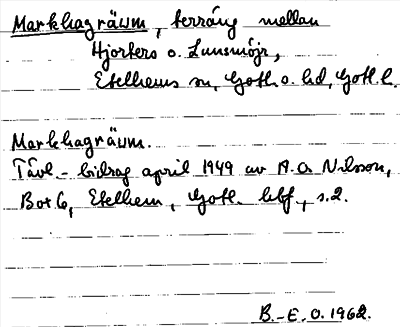 Markhagräum, terräng mellan
Hjorters o. Lunsmöjr,
Etelhems sn, Gotl. o. hd, Gotl. l.
Markhagräum.
Tävl.-bidrag april 1949 av A.O. Nilsson,
Box 6, Etelhem, Gotl. hbf., s.2.
B.-E. O. 1962.